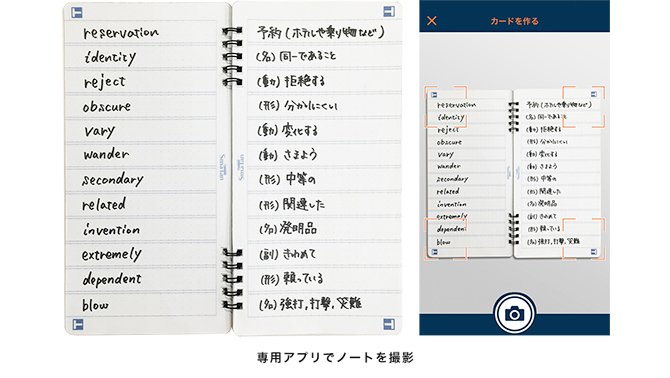 reservation 予約(ホテルや乗り物など)
identity (名)同一であること
reject (動)拒絶する
obscure (形)分かりにくい
vary (動)変化する
wander (動)さまよう
secondary (形)中等の
related (形)関連した
invention (名)発明品
extremely (副)きわめて
dependent (形)頼っている
blow (名)強打,打撃,災難
SmaTan
カードを作る
reservation 予約(ホテルや乗り物など)
identity (名)同一であること
reject (動)拒絶する
obscure (形)分かりにくい
vary (動)変化する
wander (動)さまよう
secondary (形)中等の
related (形)関連した
invention (名)発明品
extremely (副)きわめて
dependent (形)頼っている
blow (名)強打,打撃,災難
専用アプリでノートを撮影